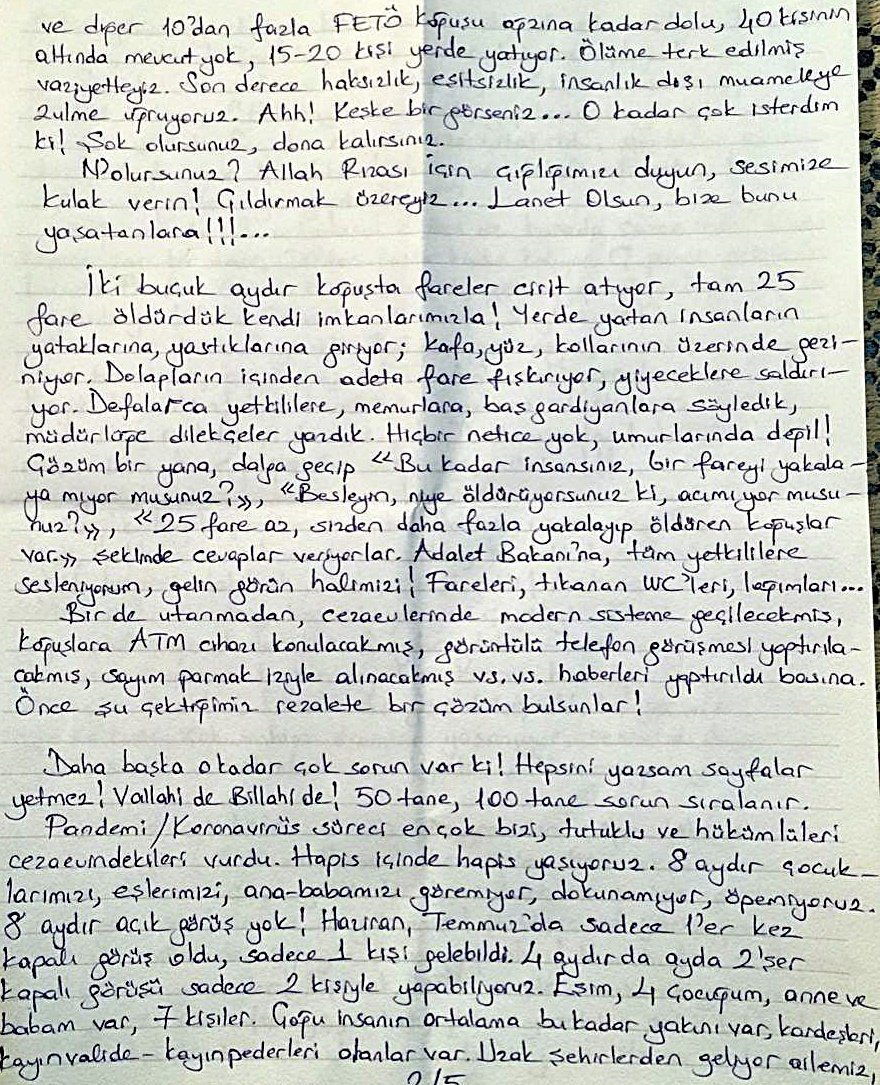 ve diğer 10'dan fazla FETÖ koğuşu ağzına kadar dolu, 40 kişinin
altında mevcut yok, 15-20 kişi yerde yatıyor. Ölüme terk edilmiş
vaziyetteyiz. Son derece haksızlık, eşitsizlik, insanlık dışı muameleye
zulme uğruyoruz. Ahh! Keşke bir görseniz... O kadar çok isterdim
ki! Şok olursunuz, dona kalırsınız.
N'olursunuz? Allah Rızası için çığlığımızı duyun, sesimize
kulak verin! Çıldırmak üzereyiz... Lanet Olsun, bize bunu
yaşatanlara!!!...
İki buçuk aydır koğuşta fareler cirit atıyor, tam 25
fare öldürdük kendi imkanlarımızla! Yerde yatan insanların
yataklarına, yastıklarına giriyor; kafa, yüz, kollarının üzerinde gezi-
niyor. Dolapların içinden adeta fare fışkırıyor, yiyeceklere saldırı-
yor. Defalarca yetkililere, memurlara, baş gardiyanlara söyledik,
müdürlüğe dilekçeler yazdık. Hiçbir netice yok, umurlarında değil!
Gözüm bir yana, dalga geçip «Bu kadar insansınız, bir fareyi yakala-
ya mıyor musunuz?», «Besleyin, niye öldürüyorsunuz ki, acımıyor musu-
nuz?», «25 fare az, sizden daha fazla yakalayıp öldüren koğuşlar
var.» şeklinde cevaplar veriyorlar. Adalet Bakanı'na, tüm yetkililere
sesleniyorum, gelin görün halimizi! Fareleri, tıkanan WC'leri, lağımları...
Bir de utanmadan, cezaevlerinde modern sisteme geçilecekmiş,
koğuşlara ATM cihazı konulacakmış, görüntülü telefon görüşmesi yaptırıla-
cakmış, sayım parmak iziyle alınacakmış vs. vs. haberleri yaptırıldı basına.
Önce şu çektiğimiz rezalete bir çözüm bulsunlar!
Daha başka o kadar çok sorun var ki! Hepsini yazsam sayfalar
yetmez! Vallahi de Billahi de! 50 tane, 100 tane sorun sıralanır.
Pandemi/Koronavirüs süreci en çok bizi, tutuklu ve hükümlüleri
cezaevindekileri vurdu. Hapis içinde hapis yaşıyoruz. 8 aydır çocuk-
larımızı, eşlerimizi, ana-babamızı göremiyor, dokunamıyor, öpemiyoruz.
8 aydır açık görüş yok! Haziran, Temmuz'da sadece 1'er kez
kapalı görüş oldu, sadece 1 kişi gelebildi. 4 aydır da ayda 2'şer
kapalı görüşü sadece 2 kişiyle yapabiliyoruz. Eşim, 4 çocuğum, anne ve
babam var, 7 kişiler. Çoğu insanın ortalama bu kadar yakını var, kardeşleri,
kayınvalide-kayınpederleri olanlar var. Uzak şehirlerden geliyor ailemiz,
2/5